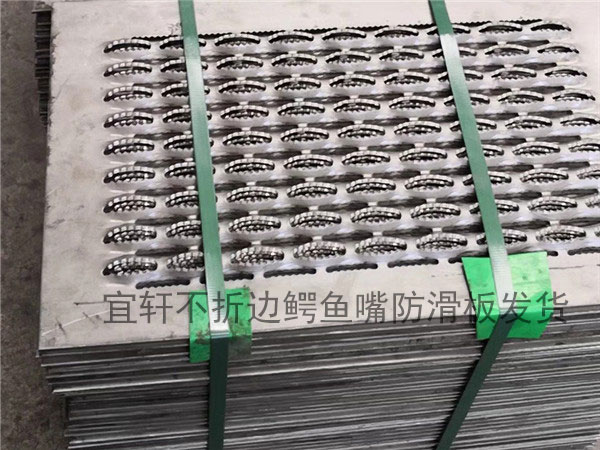 宜轩不折边鳄鱼嘴防滑板发货